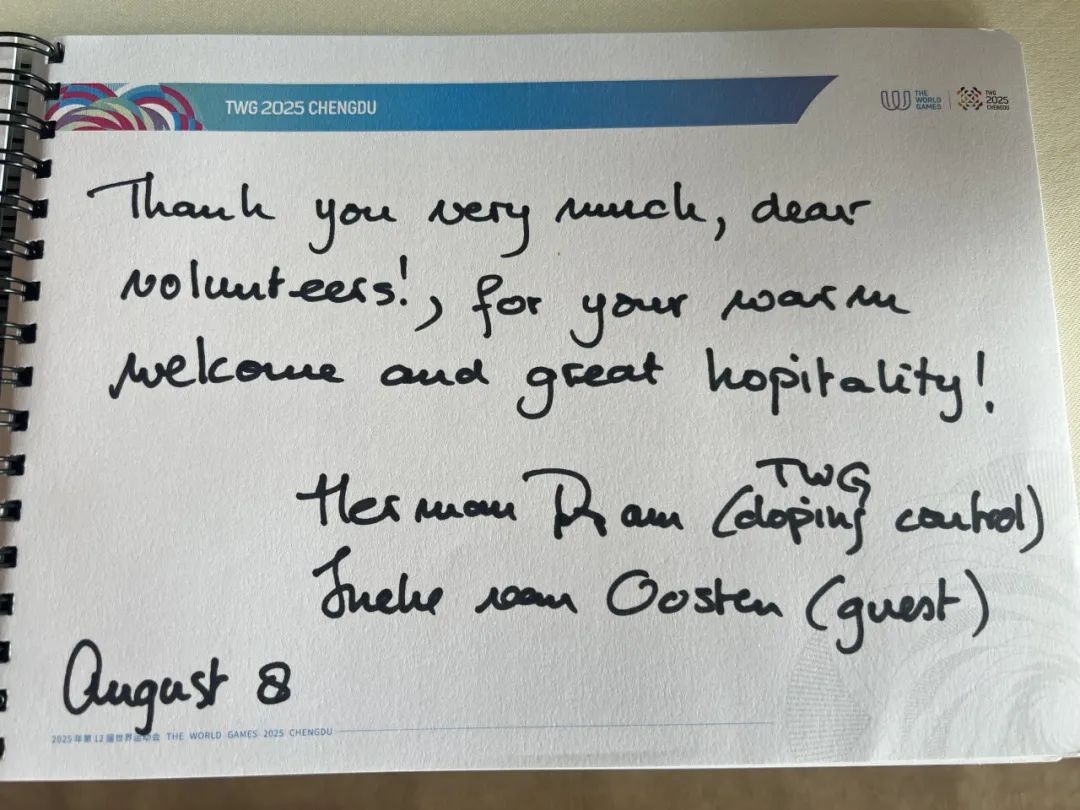 TWG 2025 CHENGDU
THE
WORLD
GAMES
TWG
2025
CHENGDU
Thank you very much, dear
volunteers!, for your warm
welcome and great hopitality!
TWG
Herman Ram (doping control)
Ineke van Oosten (guest)
August 8
2025年第12届世界运动会 THE WORLD GAMES 2025 CHENGDU